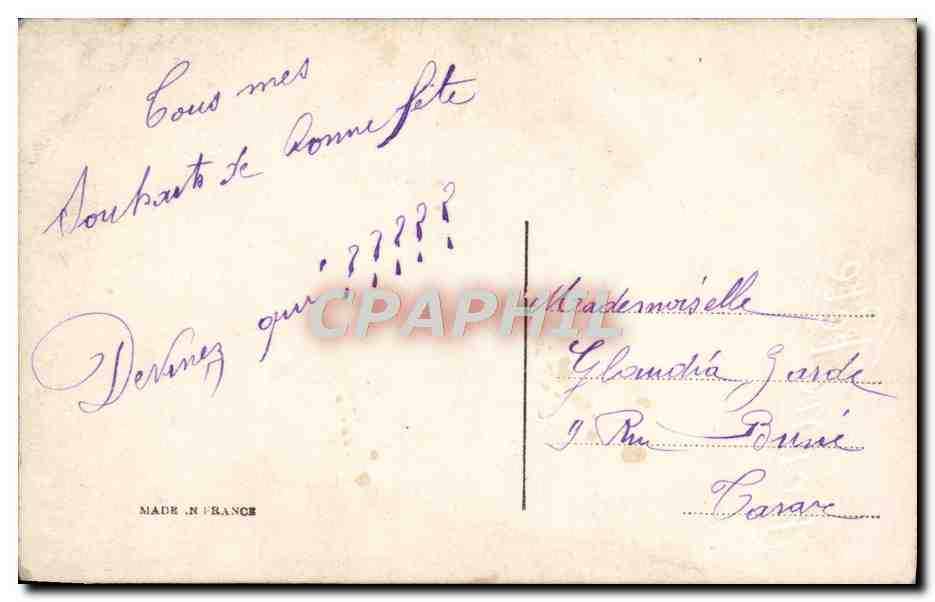 Tous mes
Souhaits de bonne fête
Devinez qui ? ? ? ? ?
CPAPHIL
Mademoiselle
Claudia Garde
9 Rue
Tarare
MADE IN FRANCE